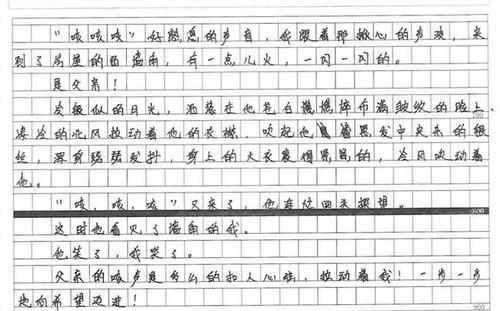 “咳咳咳”好熟悉的声音，我跟着那揪心的声源，来
到了房屋的西墙角，有一点儿火，一闪一闪的。
是父亲！
冷银似的月光，洒落在他苍白憔悴布满皱纹的脸上，
凛冷的北风拉动着他的衣襟，吹起他发中夹杂的银
丝，浑身瑟瑟发抖，身上的大衣裹得紧紧的，冷风吹动着
他。
“咳，咳，咳”又来了，他连忙回头探望。
800
这时他看见了墙角的我。
他笑了，我哭了。
父亲的咳声是多么的扣人心弦，拉动着我！一步一步
地向希望迈进！
900